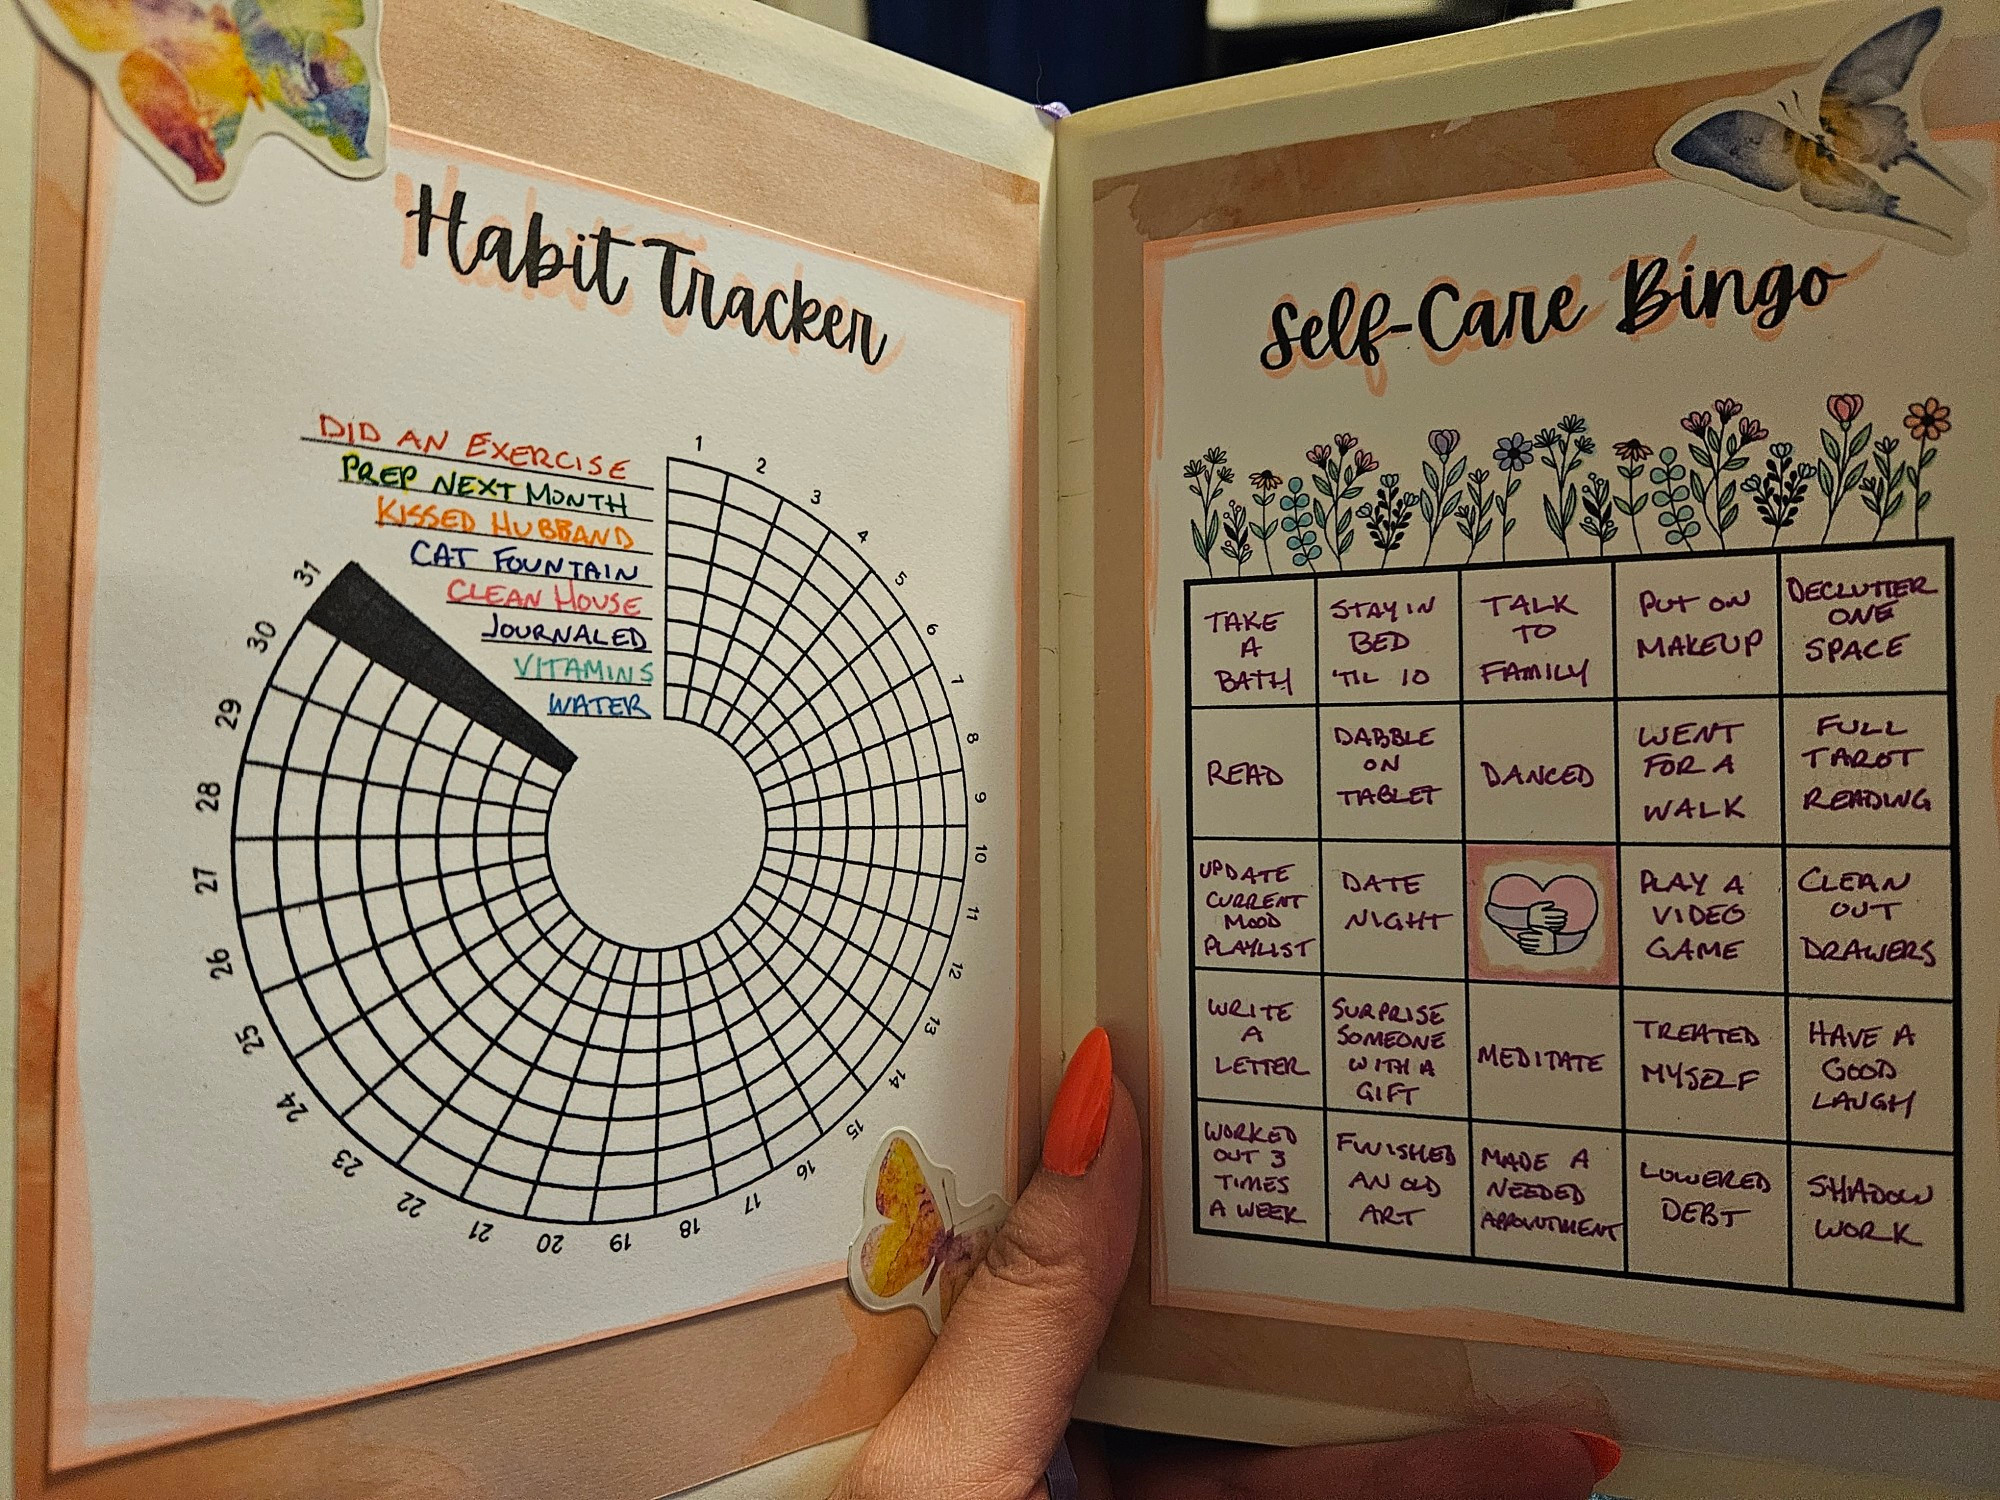 Habit Tracker
DID AN EXERCISE
PREP NEXT MONTH
KISSED HUBBAND
CAT FOUNTAIN
CLEAN HOUSE
JOURNALED
VITAMINS
WATER
1
2
3
4
5
6
7
8
9
10
11
12
13
14
15
16
17
18
19
20
21
22
23
24
25
26
27
28
29
30
31
Self-Care Bingo
TAKE
A
BATH
STAY IN
BED
'TIL 10
TALK
TO
FAMILY
PUT ON
MAKEUP
DECLUTTER
ONE
SPACE
READ
DABBLE
ON
TABLET
DANCED
WENT
FOR A
WALK
FULL
TAROT
READING
UPDATE
CURRENT
MOOD
PLAYLIST
DATE
NIGHT
PLAY A
VIDEO
GAME
CLEAN
OUT
DRAWERS
WRITE
A
LETTER
SURPRISE
SOMEONE
WITH A
GIFT
MEDITATE
TREATED
MYSELF
HAVE A
GOOD
LAUGH
WORKED
OUT 3
TIMES
A WEEK
FINISHED
AN OLD
ART
MADE A
NEEDED
APPOINTMENT
LOWERED
DEBT
SHADOW
WORK